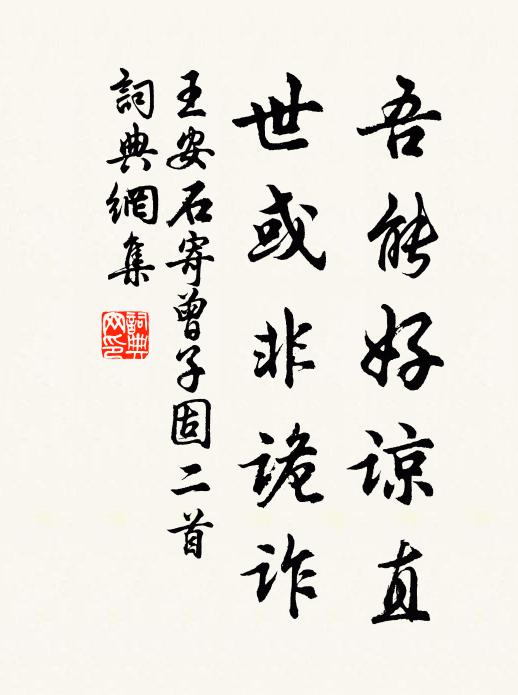 吾能好谅直
世或非詭诈
王安石寄曾子固二首
詞典網集
詞典网印